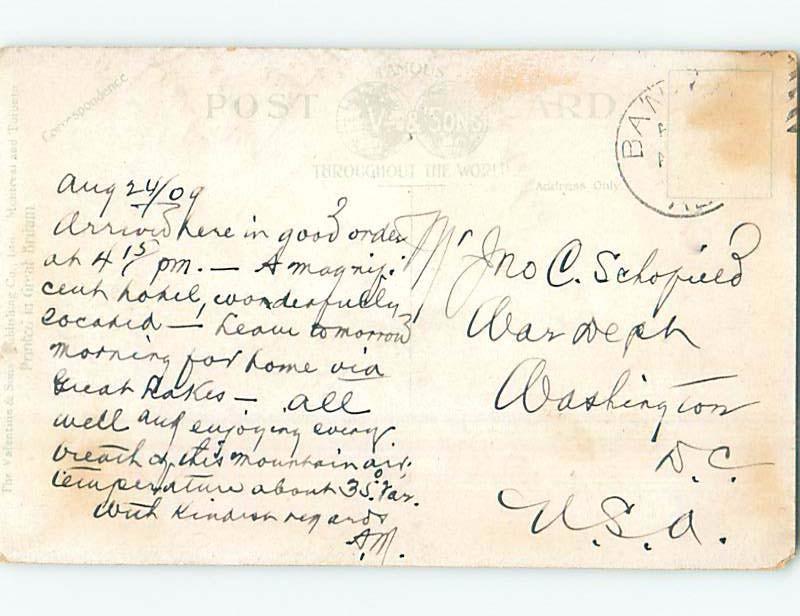 Correspondence
POST CARD
FAMOUS
V & SONS
THROUGHOUT THE WORLD
Address Only
BAN
Aug 24/09
Arrived here in good order
at 4 15 pm. — A magnifi-
cent hotel, wonderfully
located — Leave tomorrow
morning for home via
Great Lakes — all
well and enjoying every
breath of this mountain air.
temperature about 35° Far.
With kindest regards
A.M.
Mr Jno C. Schofield
War Dept
Washington
D.C.
U.S.A.
The Valentine & Sons Publishing Co., Ltd., Montreal and Toronto
Printed in Great Britain